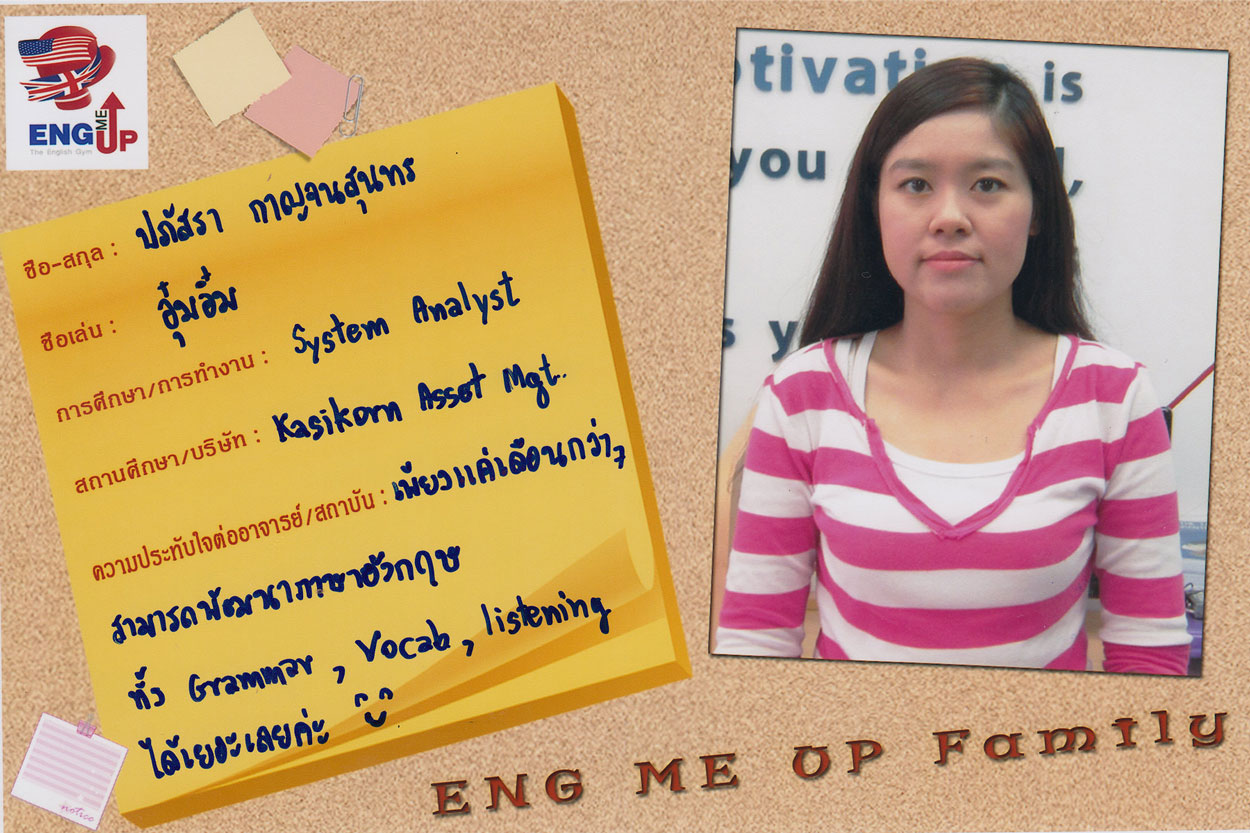 ENG ME UP
The English Gym
ชื่อ-สกุล : ปภัสรา กาญจนสุนทร
ชื่อเล่น : อุ๋มอิ๋ม
การศึกษา/การทำงาน : System Analyst
สถานศึกษา/บริษัท : Kasikorn Asset Mgt.
ความประทับใจต่ออาจารย์/สถาบัน : เพียงแค่เดือนกว่าๆ
สามารถพัฒนาภาษาอังกฤษ
ทั้ง Grammar, Vocab, listening
ได้เยอะเลยค่ะ
notice
otivation is
you
,
s y
ENG ME UP Family